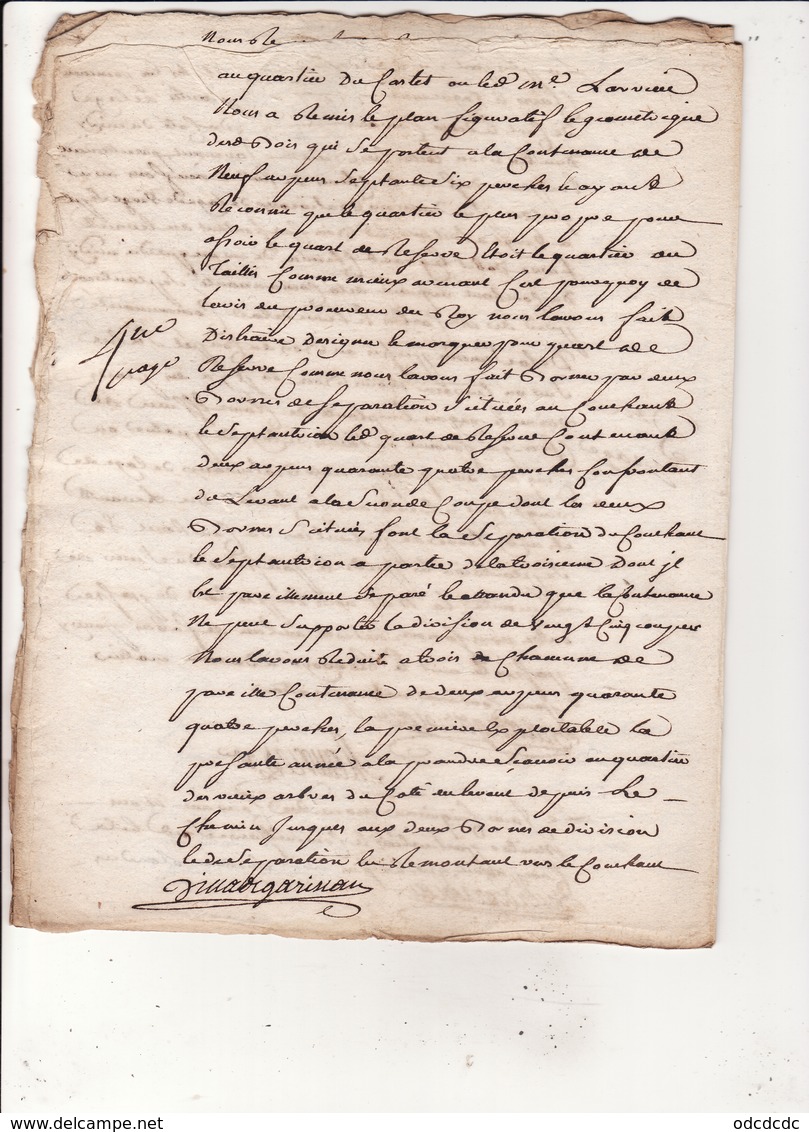 Nous
au quartier Du Castet ou led. Me. Larriere
Nous a Remis le plan figuratif & geometrique
desd Bois qui Se portent a la Contenance de
Neuf arpens Septante Six perches & ayant
Reconnu que le quartier le plus propre pour
assoir le quart de Reserve Etoit le quartier du
Taillis Comme mieux avenant C'est pourquoy de
lavis du procureur du Roy nous lavons fait
Distraire Designer & marquer pour quart de
4me
page
Reserve Comme nous lavons fait Borner par deux
Bornes de Separation Scituées au Couchant
& Septantrion led quart de Reserve Contenant
deux arpens quarante quatre perches Confrontant
du Levant a la Seconde Coupe dont les deux
Bornes Scituées font la Separation du Couchant
& Septantrion a partie de la troisieme Dont il
Est pareillement Separé & attandu que la Contenance
Ne peut Supporter la division de Vingt Cinq coupes
Nous lavons Reduite a trois de Chacunne de
pareille Contenance de deux arpens quarante
quatre perches, la premiere Exploitable la
presante année a la prandre Scavoir au quartier
des vieux arbres du Coté en levant depuis Le
Chemin Jusques aux deux Bornes de division
& de Separation En Remontant vers le Couchant
odcdcdc